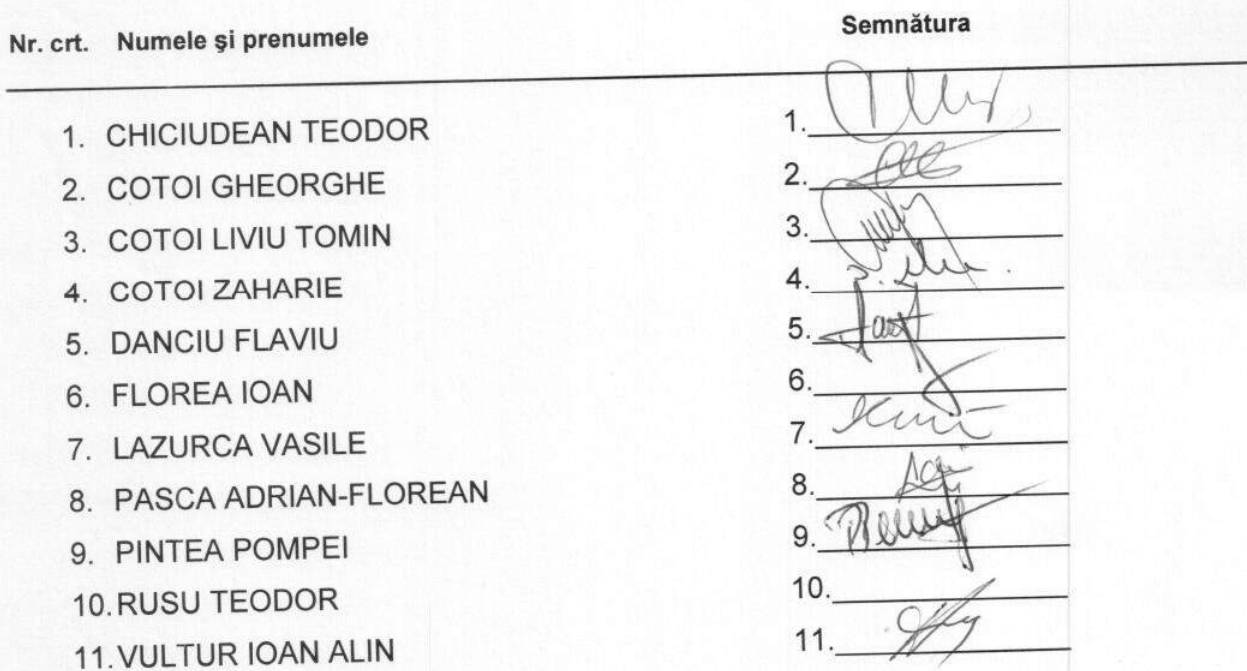 Nr. crt. Numele și prenumele Semnătura
1. CHICIUDEAN TEODOR 1.
2. COTOI GHEORGHE 2.
3. COTOI LIVIU TOMIN 3.
4. COTOI ZAHARIE 4.
5. DANCIU FLAVIU 5.
6. FLOREA IOAN 6.
7. LAZURCA VASILE 7.
8. PASCA ADRIAN-FLOREAN 8.
9. PINTEA POMPEI 9.
10. RUSU TEODOR 10.
11. VULTUR IOAN ALIN 11.